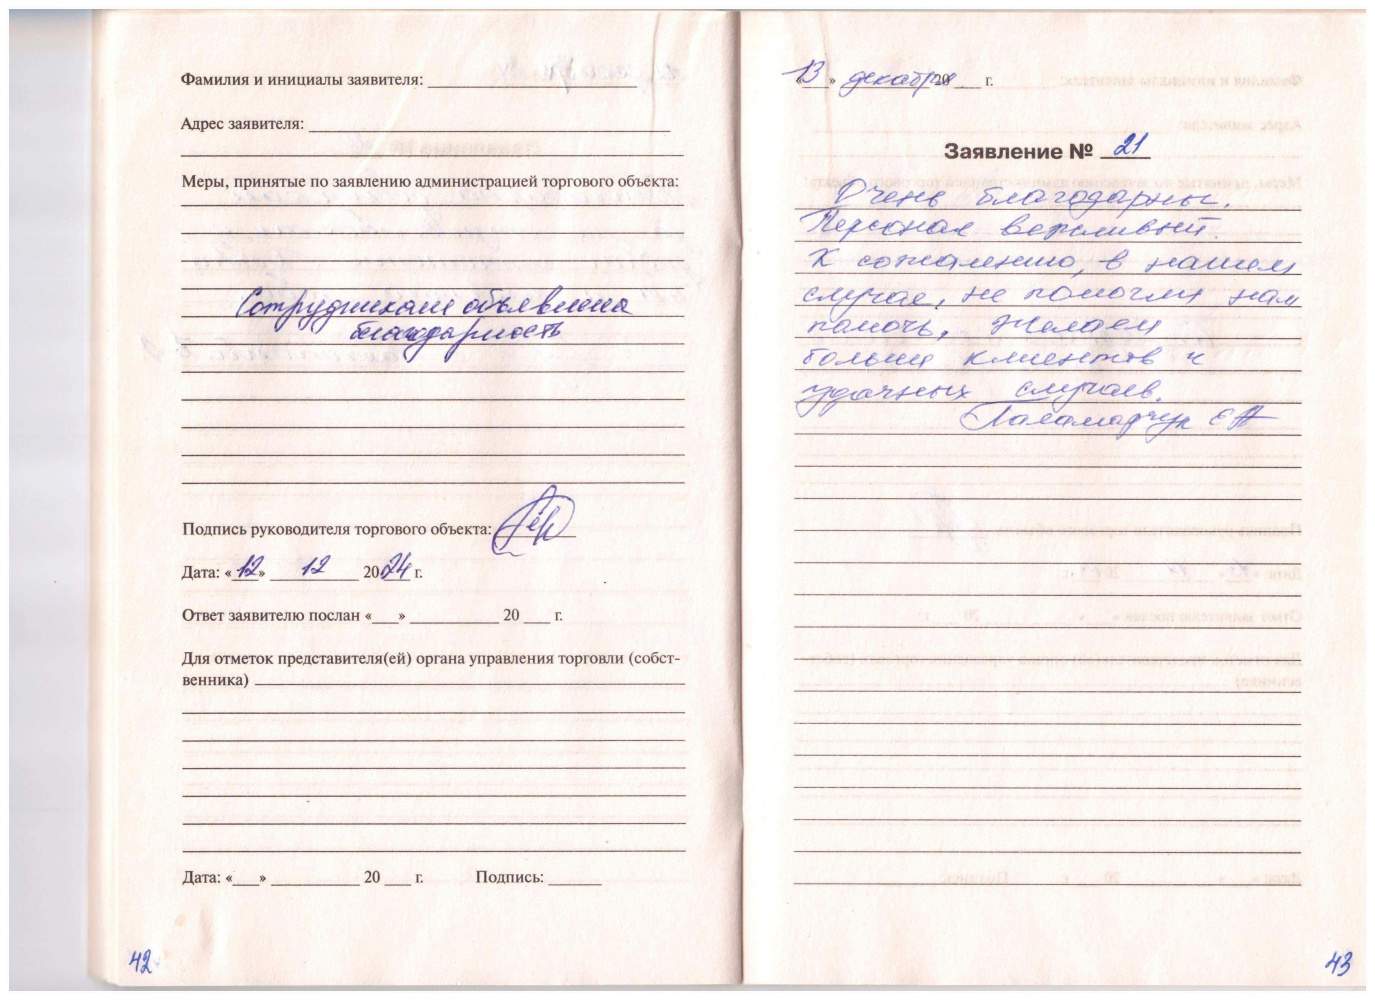 Фамилия и инициалы заявителя:
Адрес заявителя:
Меры, принятые по заявлению администрацией торгового объекта:
Сотрудникам объявлена
благодарность
Подпись руководителя торгового объекта:
Дата: «12» 12 2024 г.
Ответ заявителю послан «___» ___ 20 ___ г.
Для отметок представителя(ей) органа управления торговли (собст-
венника)
Дата: «___» ___ 20 ___ г. Подпись:
42
«13» декабря 20 ___ г.
Заявление № 21
Очень благодарны.
Персонал вежливый.
К сожалению, в нашем
случае, не помогли нам
помочь, Желаем
больше клиентов и
удачных случаев.
Паламарчук Е А
43